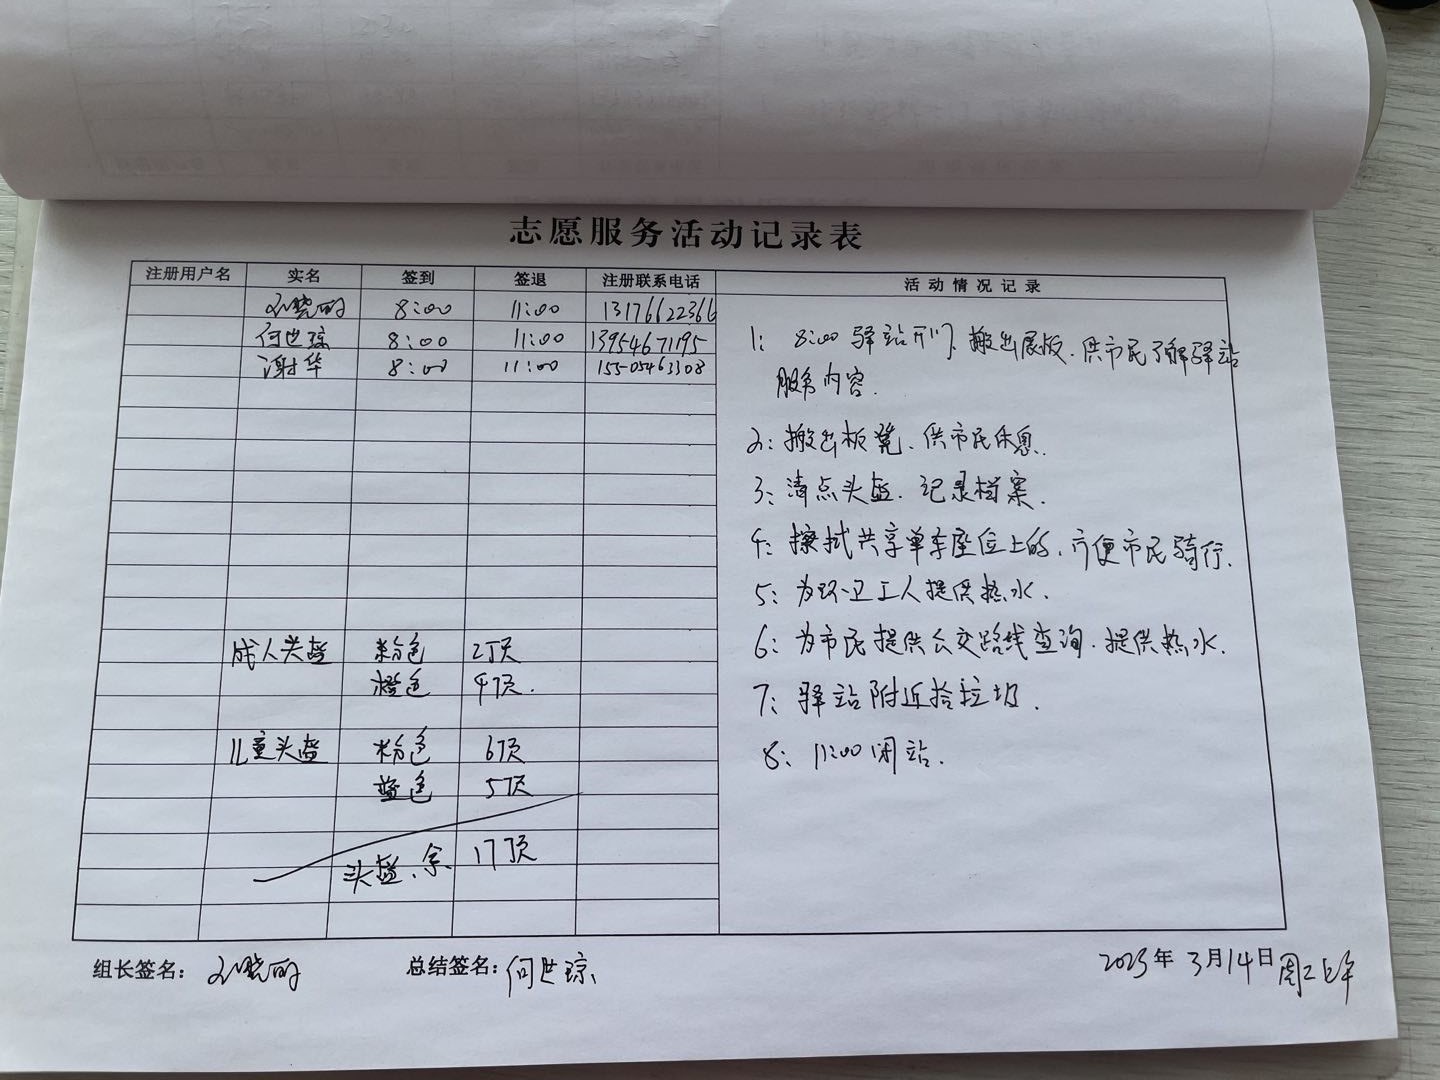 志愿服务活动记录表
注册用户名 实名 签到 签退 注册联系电话 活动情况记录
8:00 11:00 13176622366
何世琼 8:00 11:00 13954671195
谢华 8:00 11:00 15505463308
1: 8:00驿站开门、搬出展板、供市民了解驿站
服务内容.
2: 搬出板凳、供市民休息.
3: 清点头盔、记录档案.
4: 擦拭共享单车座位上的、方便市民骑行.
5: 为环卫工人提供热水.
6: 为市民提供公交路线查询、提供热水.
7: 驿站附近捡垃圾.
8: 11:00闭站.
成人头盔 粉色 2顶
橙色 4顶.
儿童头盔 粉色 6顶
蓝色 5顶
头盔、余 17顶
组长签名: 总结签名: 何世琼 2023年3月14日周二上午